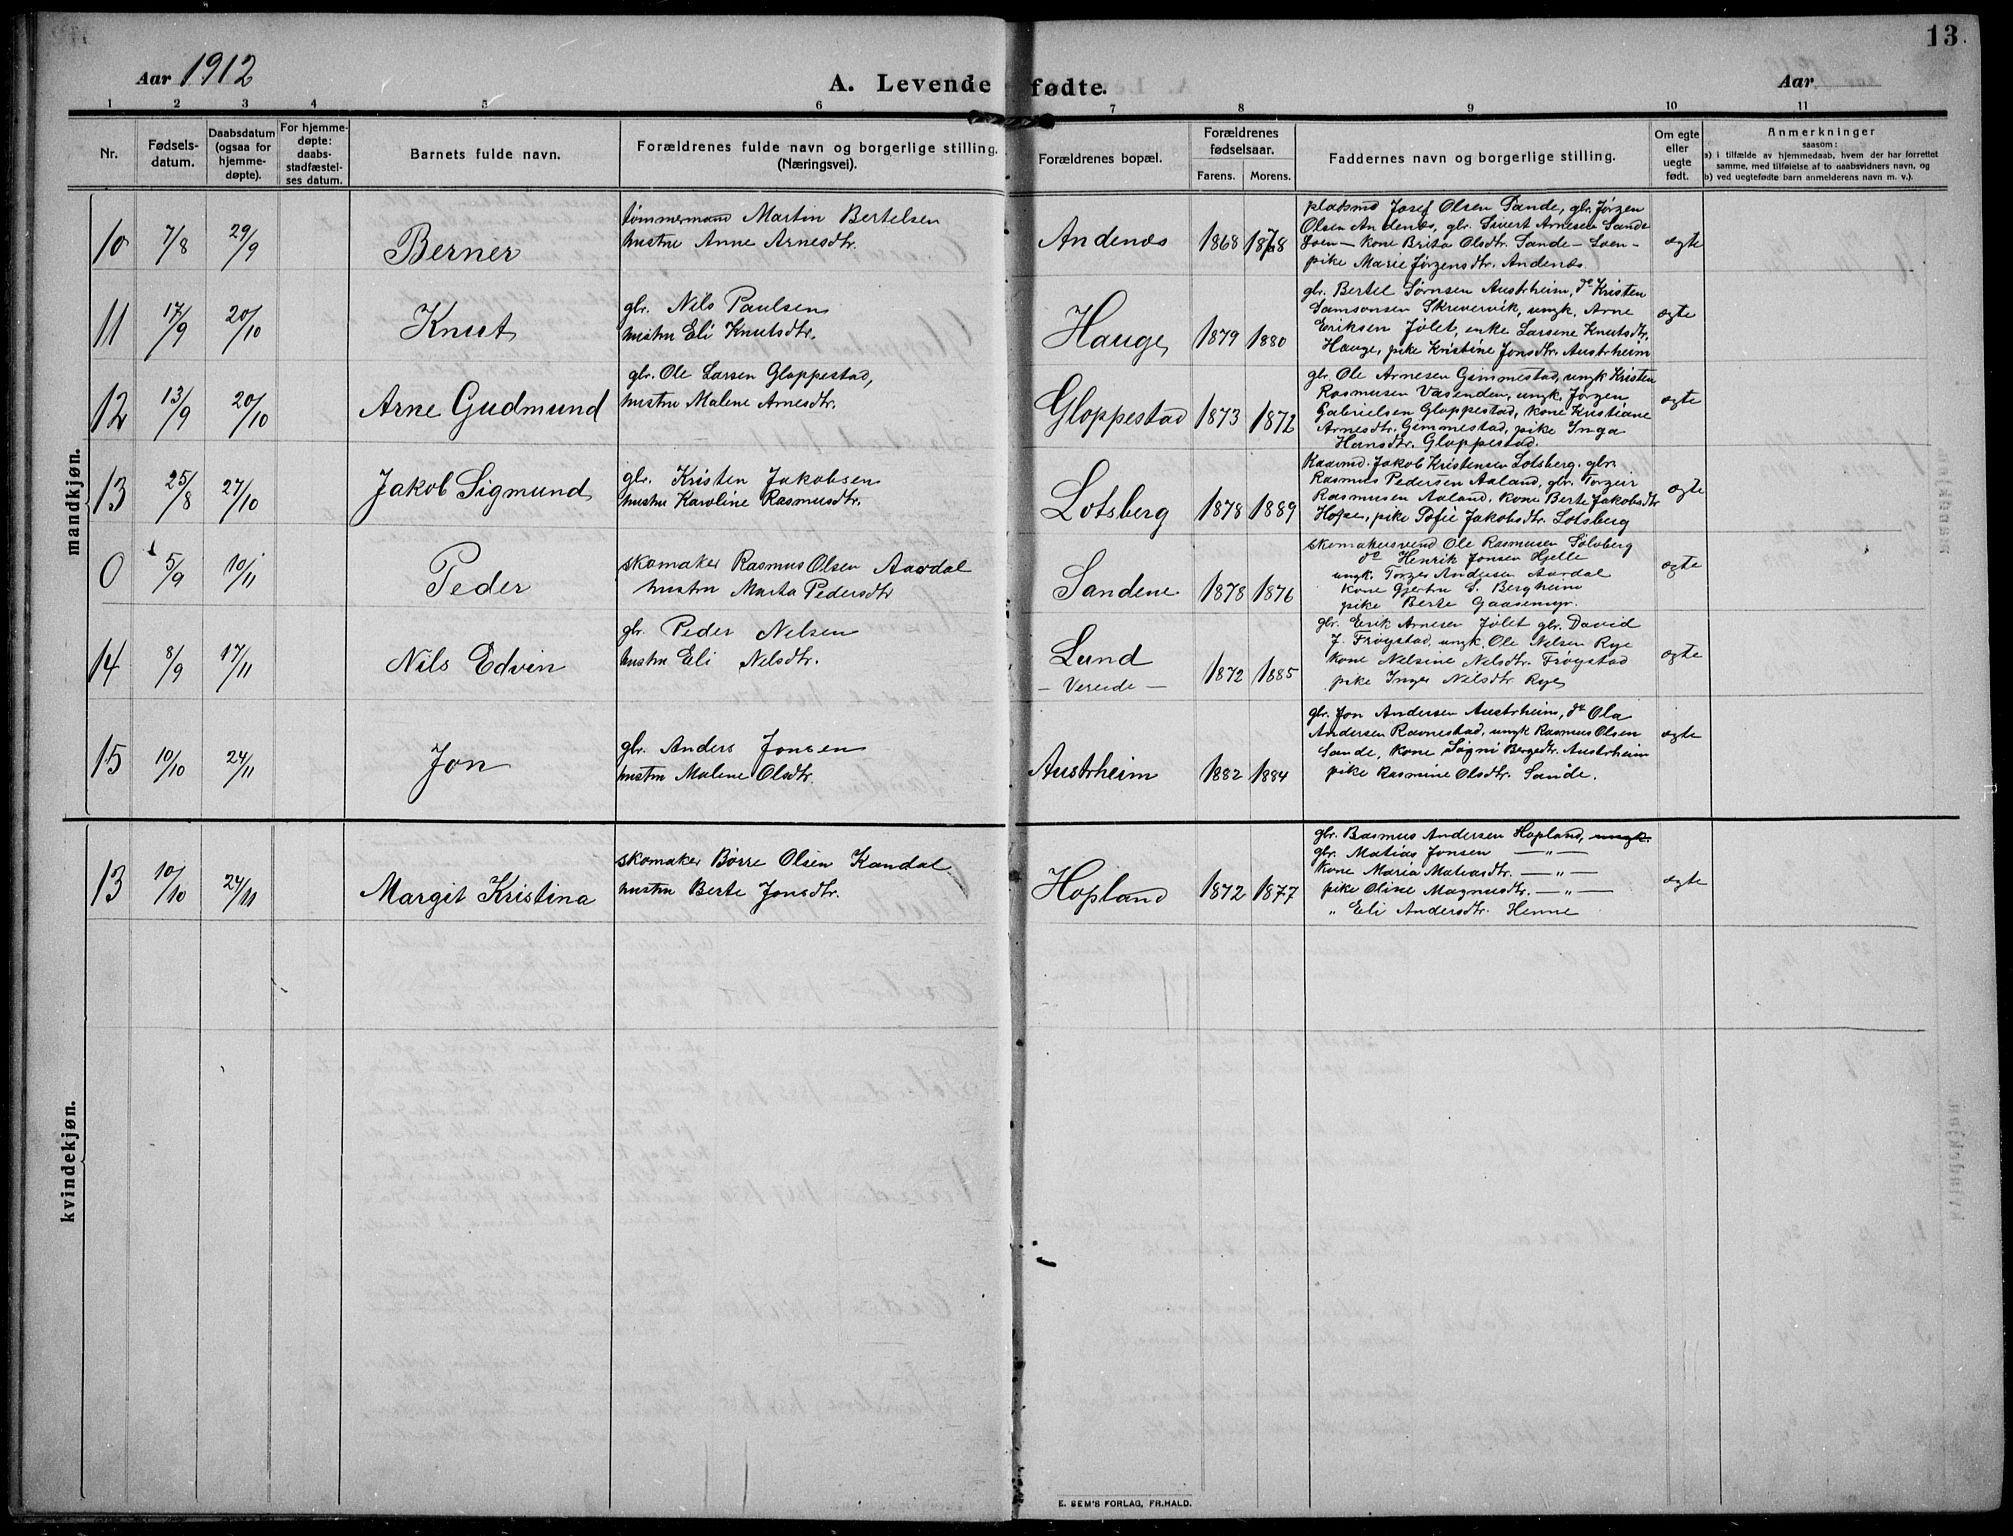 13.
Aar 1912
A. Levende fødte.
Aar
1 2 3 4 5 6 7 8 9 10 11
Nr.
Fødsels-
datum.
Daabsdatum
(ogsaa for
hjemme-
døpte).
For hjemme-
døpte:
daabs-
stadfæstel-
ses datum.
Barnets fulde navn.
Forældrenes fulde navn og borgerlige stilling.
(Næringsvei).
Forældrenes bopæl.
Forældrenes
fødselsaar.
Farens. Morens.
Faddernes navn og borgerlige stilling.
Om egte
eller
uegte
født.
Anmerkninger
saasom:
a) i tilfælde av hjemmedaab, hvem der har forrettet
samme, med tilføielse af to daabsvidners navn, og
b) ved uegtefødte barn anmelderens navn m. v.).
mandkjøn.
10 7/8 29/9 Berner
tømmermand Martin Bertelsen
hustru Anne Arnesdtr.
Andenæs 1868 1878
pladsmd Josef Olsen Sande, gbr. Jørgen
Olsen Andenæs, gbr. Sivert Arnesen Sande
Loen - kone Brita Olsdtr. Sande - Loen -
pike Marie Jørgensdtr. Andenæs.
egte
11 17/9 20/10 Knut
gbr. Nils Paulsen
hustru Eli Knutsdtr.
Hauge 1879 1880
gbr. Bertel Sørnsen Austrheim, do Kristen
Samsonsen Skrevervik, ungk. Arne
Eriksen Jølet, enke Larsene Knutsdtr.
Hauge, pike Kristine Jonsdtr. Austrheim
egte
12 13/9 20/10 Arne Gudmund
gbr. Ole Larsen Gloppestad,
hustru Malene Arnesdtr.
Gloppestad 1873 1872
gbr. Ole Arnesen Gimmestad, ungk Kristen
Rasmusen Vasenden, ungk. Jørgen
Gabrielsen Gloppestad, kone Kristiane
Arnesdtr. Gimmestad, pike Inga
Hansdtr. Gloppestad.
egte
13 25/8 27/10 Jakob Sigmund
gbr. Kristen Jakobsen
hustru Karoline Rasmusdtr.
Lotsberg 1878 1889
Kaarmd. Jakob Kristensen Lotsberg. gbr.
Rasmus Pedersen Aaland, gbr. Torgeir
Rasmusen Aaland. kone Berte Jakobsdtr
Hope, pike Sofie Jakobsdtr. Lotsberg
egte
0 5/9 10/11 Peder
skomaker Rasmus Olsen Aardal
hustru Marta Pedersdtr
Sandene 1878 1876
skomakersvend Ole Rasmusen Solvberg
do Henrik Jonsen Hjelle
ungk. Torger Andersen Aardal
kone Gjertru S. Bergheim
pike Berte Gaasemyr.
egte
14 8/9 17/11 Nils Edvin
gbr. Peder Nelsen
hustru Eli Nelsdtr.
Lund
- Vereide -
1872 1885
gbr. Erik Arnesen Jølet gbr. David
J. Frøystad, ungk Ole Nelsen Rye
kone Nelsine Nilsdtr. Frøystad
pike Inger Nilsdtr. Rye
egte
15 10/10 24/11 Jon
gbr. Anders Jonsen
hustru Malene Olsdtr.
Austrheim 1882 1884
gbr. Jon Andersen Austrheim, do Ola
Andersen Ravnestad, ungk Rasmus Olsen
Sande, kone Signi Bergedtr. Austrheim
pike Rasmine Olsdtr. Sande.
egte
kvindekjøn.
13 10/10 24/11 Margit Kristina
skomaker Børre Olsen Kandal
hustru Berte Jonsdtr.
Hopland 1872 1877
gbr. Rasmus Andersen Hopland, ungk.
gbr. Matias Jonsen — " —
kone Maria Matiasdtr. — " —
pike Oline Magnusdtr. — " —
" Eli Andersdtr. Henne
egte
E. SEM'S FORLAG, FR.HALD.